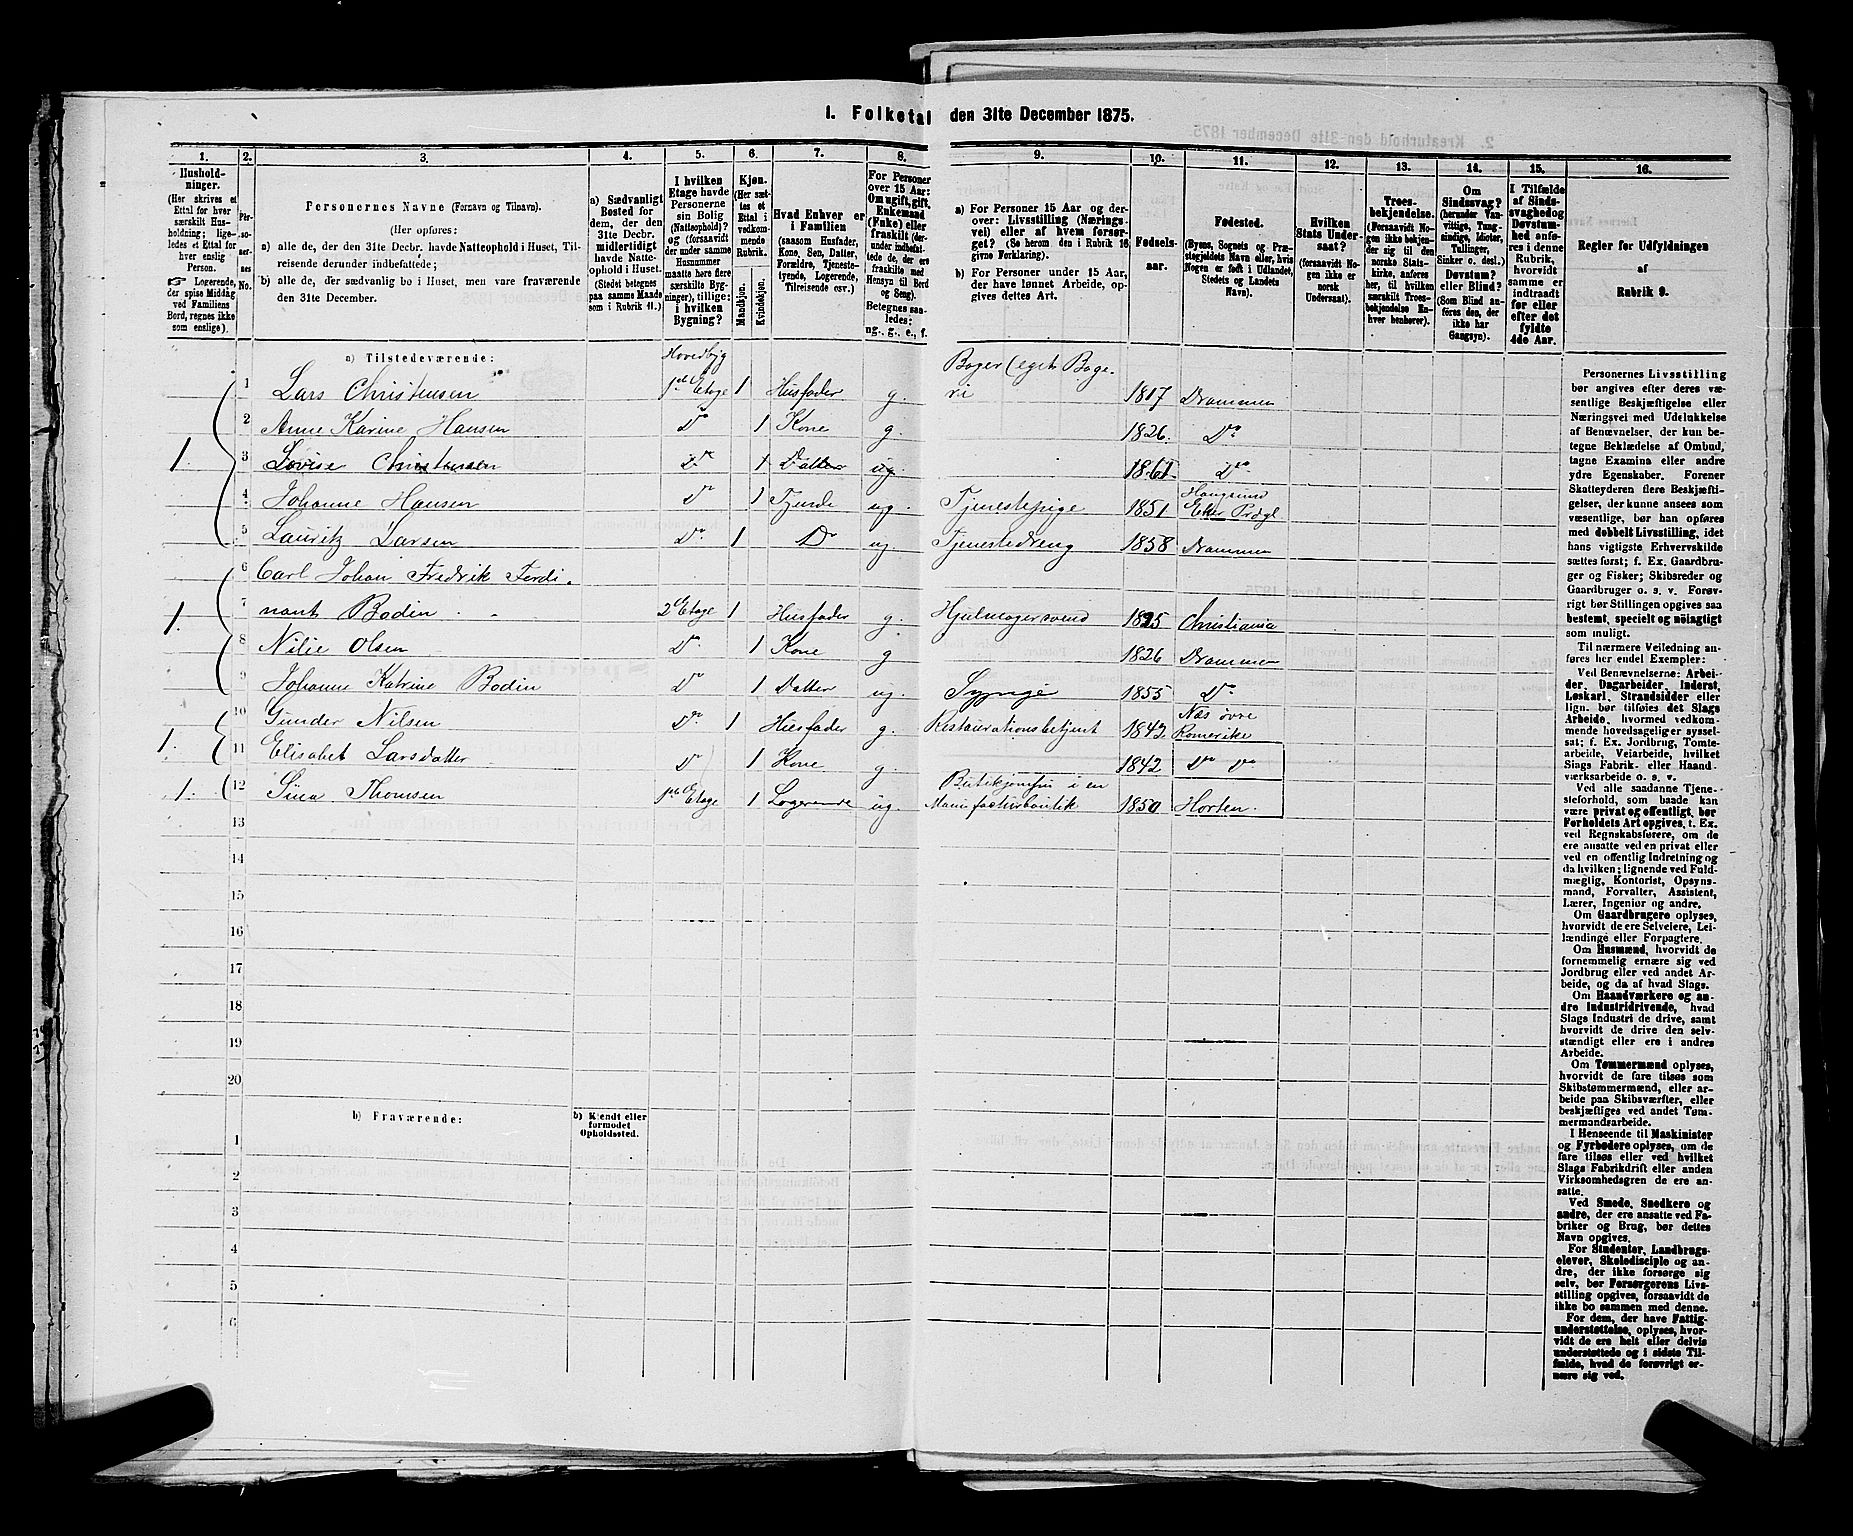 1. Folketal den 31te December 1875.
1. 2. 3. 4. 5. 6. 7. 8. 9. 10. 11. 12. 13. 14. 15. 16.
Husholdninger. (Her skrives et Ettal for hver særskilt Husholdning; ligeledes et Ettal for hver enslig Person.
☞ Logerende, der spise Middag ved Familiens Bord, regnes ikke som enslige).
Personernes No.
Personernes Navne (Fornavn og Tilnavn).
(Her opføres:
a) alle de, der den 31te Decbr. havde Natteophold i Huset, Tilreisende derunder indbefattede;
b) alle de, der sædvanlig bo i Huset, men vare fraværende den 31te December.
a) Sædvanligt Bosted for dem, der den 31te Decbr. midlertidigt havde Natteophold i Huset. (Stedet betegnes paa samme Maade som i Rubrik 11.)
I hvilken Etage havde Personerne sin Bolig (Natteophold)? og (forsaavidt der under samme Husnummer maatte høre flere særskilte Bygninger), tillige: i hvilken Bygning?
Kjøn. (Her sættes et Ettal i vedkommende Rubrik.
Mandkjøn. Kvindekjøn.
Hvad Enhver er i Familien (saasom Husfader, Kone, Søn, Datter, Forældre, Tjenestetyende, Logerende, Tilreisende osv.)
For Personer over 15 Aar: Om ugift, gift, Enkemand (Enke) eller fraskilt (derunder indbefattede de, der ere fraskilte med Hensyn til Bord og Seng). Betegnes saaledes: ug., g., e., f.
a) For Personer 15 Aar og derover: Livsstilling (Næringsvei) eller af hvem forsørget? (Se herom den i Rubrik 16 givne Forklaring).
b) For Personer under 15 Aar, der have lønnet Arbeide, opgives dettes Art.
Fødselsaar.
Fødested. (Byens, Sognets og Præstegjeldets Navn eller, hvis Nogen er født i Udlandet, Stedets og Landets Navn).
Hvilken Stats Undersaat? (forsaavidt Nogen ikke er norsk Undersaat).
Troesbekjendelse. (Forsaavidt Nogen ikke bekjender sig til den norske Statskirke, anføres her, til hvilken særskilt Troesbekjendelse Enhver henhører).
Om Sindssvag? (herunder Vanvittige, Tungsindige, Idioter, Tullinger, Sinker o. desl.). Døvstum? eller Blind? (Som Blind anføres den, der ikke har Gangsyn).
I Tilfælde af Sindssvaghed og Døvstumhed anføres i denne Rubrik, hvorvidt samme er indtraadt før eller efter det fyldte 4de Aar.
Regler for Udfyldningen af Rubrik 9.
a) Tilstedeværende:
Hovedbyg
1 Lars Christensen 1ste Etage 1 Husfader g. Bager (eget Bageri 1817 Drammen
2 Anne Karine Hansen Do 1 Kone g. 1826. Do
1. 3 Lovise Christensen Do 1 Datter ug. 1861. Do
4 Johanne Hansen Do 1 Tyende ug. Tjenestepige 1851 Haugsund Eker Prægl
5 Lauritz Larsen Do 1 Do ug Tjenestedreng 1858 Drammen
6 Carl Johan Fredrik Ferdi-
1. 7 nant Bodin 2 Etage 1 Husfader g. Hjulmagersvend 1825 Christiania
8 Nilie Olsen Do 1 Kone g 1826 Drammen
9 Johanne Katrine Bodin Do 1 Datter ug. Sypige 1855 Do
10 Gunder Nilsen Do 1 Husfader g. Restaurationsbetjent 1842 Næs øvre Romerike
1. 11 Elisabet Larsdatter Do 1 Kone g. 1842 Do Do
1. 12 Sina Thomsen 1ste Etage 1 Logerende ug. Butikjomfru i en Manufacturboutik 1850 Horten.
13
14
15
16
17
18
19
20
b) Fraværende:
b) Kjendt eller formodet Opholdssted.
1
2
3
4
5
6
Personernes Livsstilling bør angives efter deres væsentlige Beskjæftigelse eller Næringsvei med Udelukkelse af Benævnelser, der kun betegne Beklædelse af Ombud, tagne Examina eller andre ydre Egenskaber. Forener Skatteyderen flere Beskjæftigelser, der kunne ansees som væsentlige, bør han opføres med dobbelt Livsstilling, idet hans vigtigste Erhvervskilde sættes først; f. Ex. Gaardbruger og Fisker; Skibsreder og Gaardbruger o. s. v. Forøvrigt bør Stillingen opgives saa bestemt, specielt og nöiagtigt som muligt.
Til nærmere Veiledning anføres her endel Exempler:
Ved Benævnelserne: Arbeider, Dagarbeider, Inderst, Løskarl, Strandsidder eller lign. bør tilføies det Slags Arbeide, hvormed vedkommende hovedsagelig er sysselsat; f. Ex. Jordbrug, Tomtearbeide, Veiarbeide, hvilket Slags Fabrik- eller Haandværksarbeide o. s. v.
Ved alle saadanne Tjenesteforhold, som baade kan være privat og offentligt, bør Forholdets Art opgives, t. Ex. ved Regnskabsførere, om de ere ansatte ved en privat eller ved en offentlig Indretning og da hvilken; lignende ved Fuldmægtig, Kontorist, Opsynsmand, Forvalter, Assistent, Lærer, Ingeniør og andre.
Om Gaardbrugere oplyses, hvorvidt de ere Selveiere, Leilændinge eller Forpagtere.
Om Husmænd, hvorvidt de fornemmelig ernære sig ved Jordbrug eller ved andet Arbeide, og da af hvad Slags.
Om Haandværkere og andre Industridrivende, hvad Slags Industri de drive, samt hvorvidt de drive den selvstændigt eller ere i andres Arbeide.
Om Tømmermænd oplyses, hvorvidt de fare tilsøs som Skibstømmermænd, eller arbeide paa Skibsværfter, eller beskjæftiges ved andet Tømmermandsarbeide.
I Henseende til Maskinister og Fyrbødere oplyses, om de fare tilsøs eller ved hvilket Slags Fabrikdrift eller anden Virksomhedsgren de ere ansatte.
Ved Smede, Snedkere og andre, der ere ansatte ved Fabriker og Brug, bør dettes Navn opgives.
For Studenter, Landbrugselever, Skoledisciple og andre, der ikke forsørge sig selv, bør Forsørgerens Livsstilling opgives, forsaavidt de ikke bo sammen med denne.
For dem, der have Fattigunderstøttelse, oplyses, hvorvidt de ere helt eller delvis understøttede og i sidste Tilfælde, hvad de forøvrigt ernære sig ved.